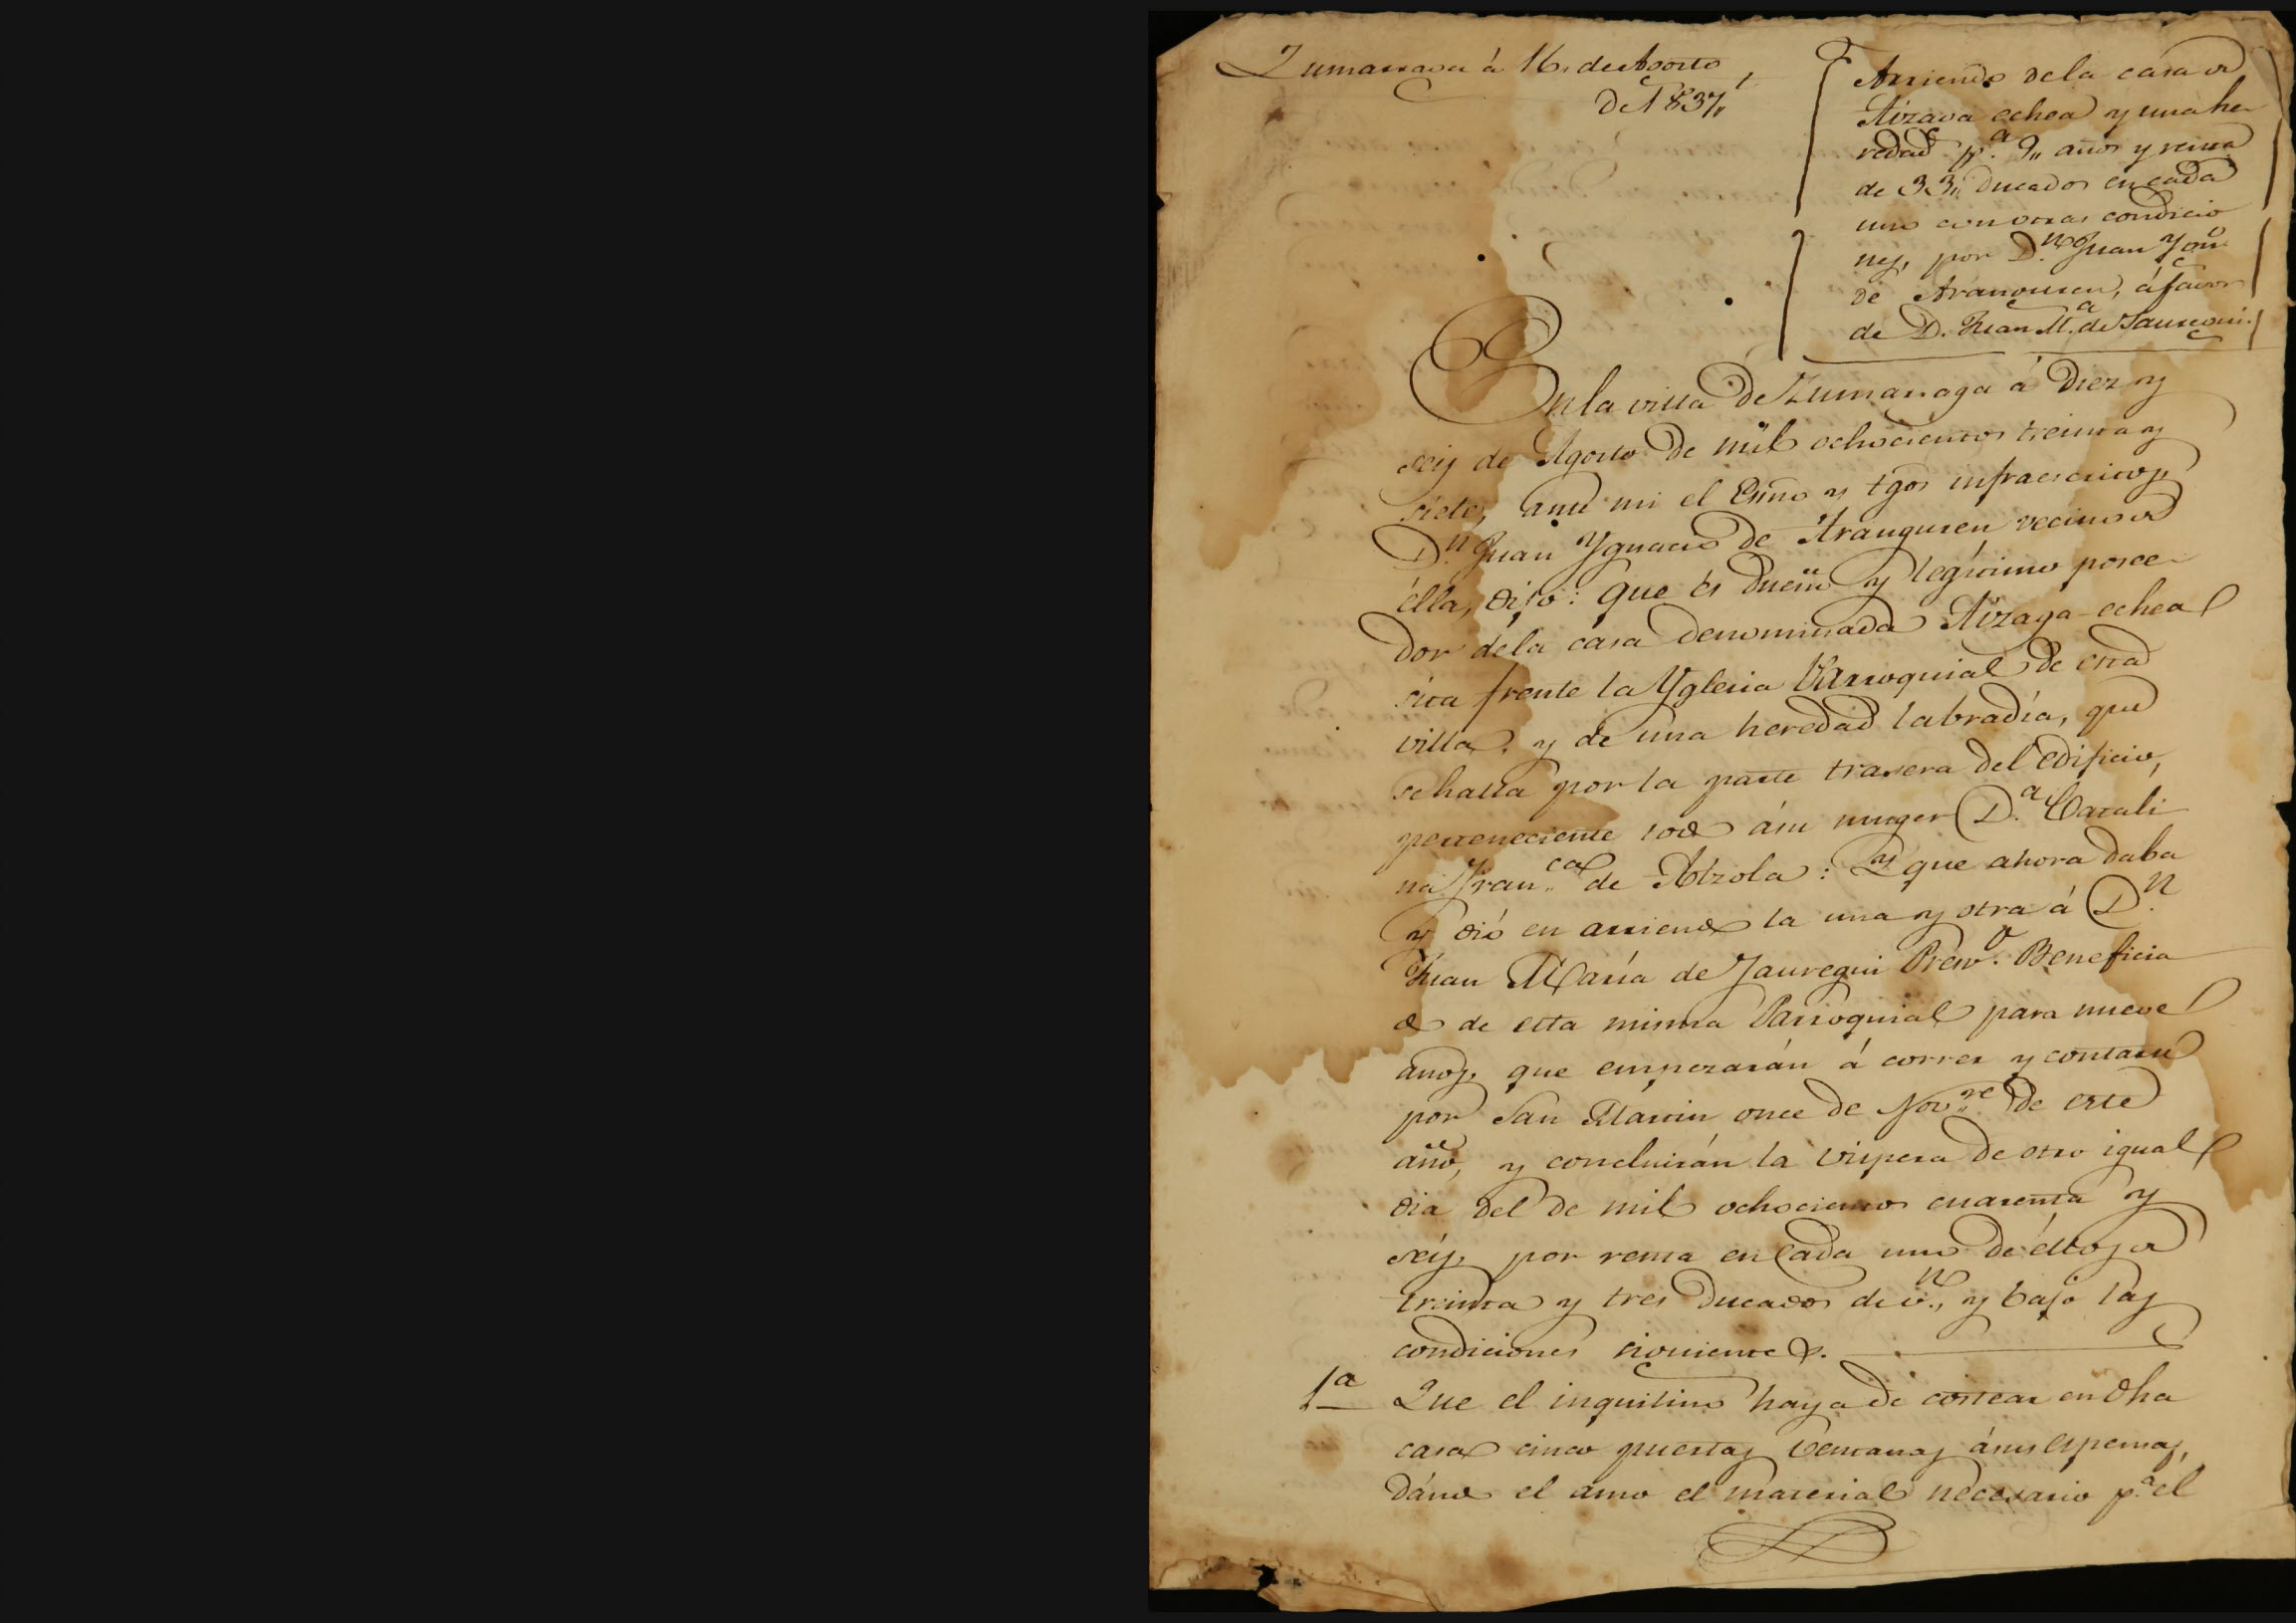 Zumarraga á 16,, de Agosto
de 1837,,
Arriendo de la casa de
Aizaga echea y una he
redad p.ª 9,, años y renta
de 33,, ducados en cada
uno con otras condicio
nes, por D.n Juan Ygn.o
de Aranguren, á favor
de D. Juan M.ª de Jauregui.
En la villa de Zumarraga á Diez y
seis de Agosto de mil ochocientos treinta y
siete, ante mi el Esnno y tgos infraescritos,
D.n Juan Ygnacio de Aranguren vecino de
élla, dijo: Que és dueño y legítimo posee-
dor de la casa denominada Aizaga-echea
sita frente la Yglesia Parroquial de esta
villa, y de una heredad labradía, que
se halla por la parte trasera del edificio,
perteneciente todo á su muger D.ª Catali-
na Fran.ca de Alzola: Y que ahora daba
y dió en arriendo la una y otra á D.n
Juan María de Jauregui Presv.o Beneficia
do de esta misma Parroquial para nueve
años, que empezarán á correr y contarse
por San Martin once de Nov.re de este
año, y concluirán la víspera de otro igual
dia del de mil ochocientos cuarenta y
seis, por renta en cada uno de éllos de
treinta y tres ducados de v.n, y bajo las
condiciones siguientes.
1.ª Que el inquilino haya de costear en dha
casa cinco puertas ventanas á sus espensas,
dándo el amo el material necesario p.ª el